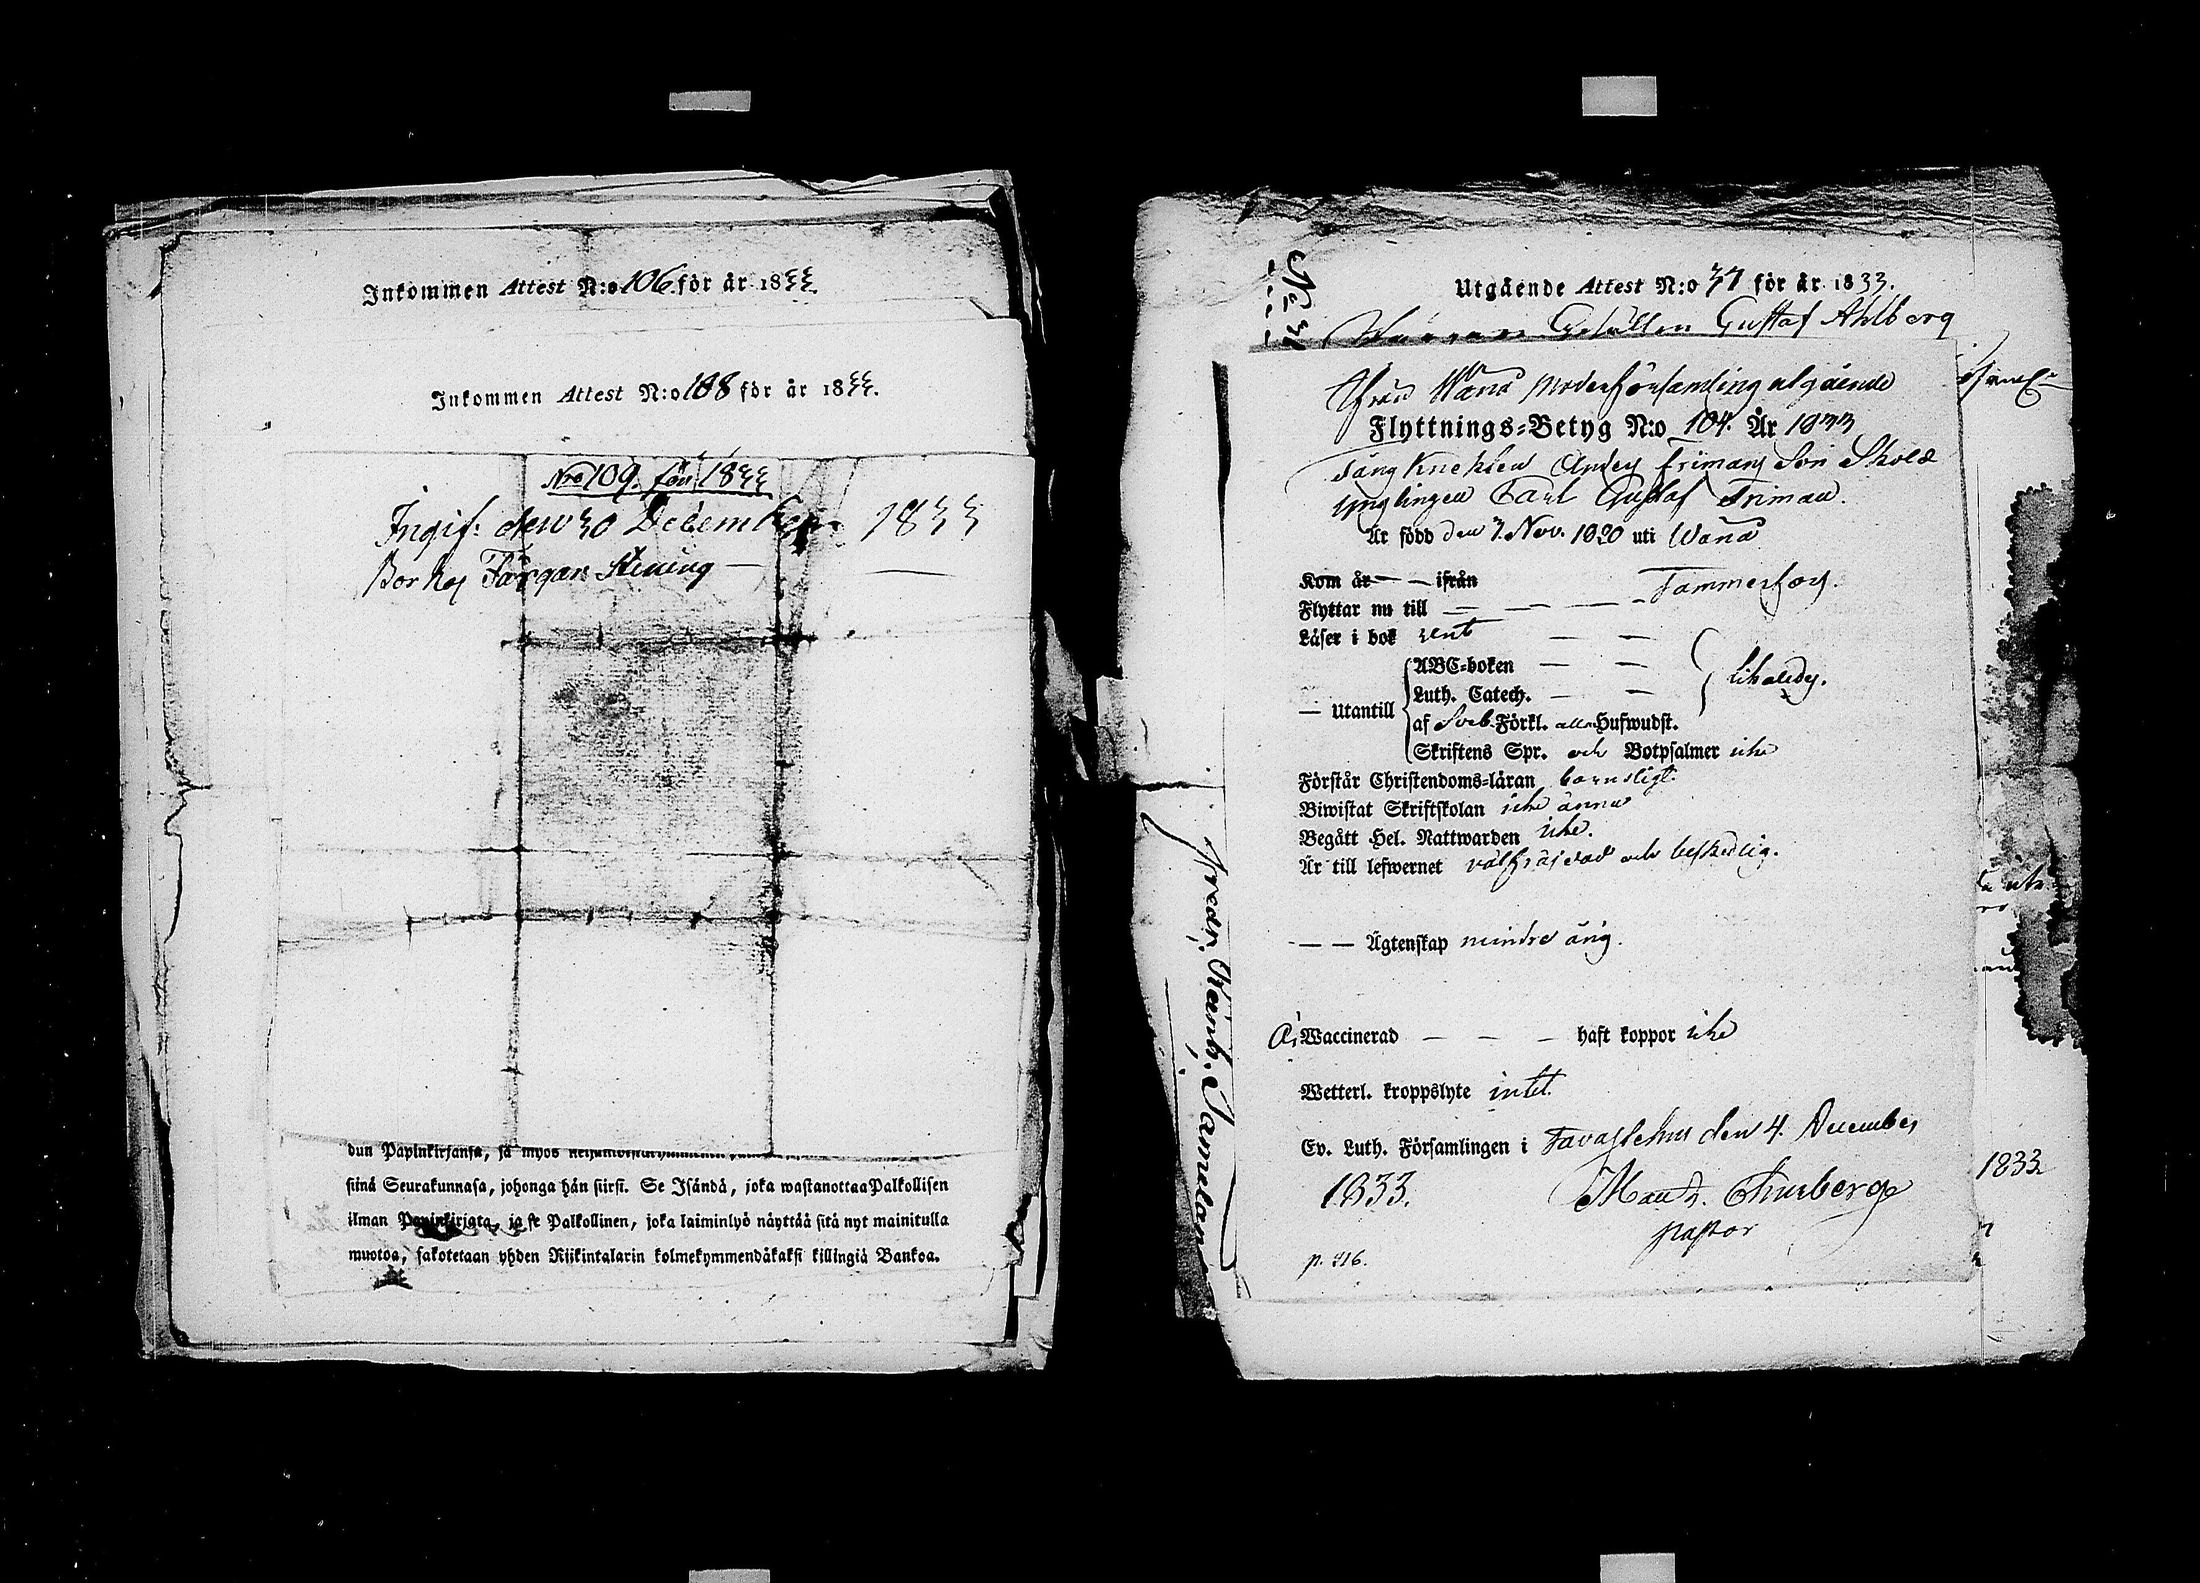 Inkommen Attest N:o 106. för år 1833.
Inkommen Attest N:o 108 för år 1833.
Nro 109. för 1833
Ingif: den 30 December 1833
Bor hos Färgar Stening —
dun Papinkirjansa, ja myös
siinä Seurakunnasa, johonga hän siirsi. Se Isändä, joka wastanottaa Palkollisen
ilman Papinkirjata, ja se Palkollinen, joka laiminlyö näyttää sitä nyt mainitulla
muotoa, sakotetaan yhden Riikintalarin kolmekymmendäkaksi killingiä Bankoa.
Utgående Attest N:o 37 för år 1833.
Gesällen Gustaf Ahlberg
Från Wånå Moderförsamling utgående
Flyttnings-Betyg N:o 104. År 1833
Anders Frimans Son
Ynglingen Carl Gustaf Friman.
Är född den 7. Nov. 1820 uti Wånå
Kom år — — ifrån
Flyttar nu till — — — Tammerfors.
Läser i bok rent — —
— Utantill
ABC-boken — —
Luth. Catech. — —
af Sveb. Förkl. alla Hufwudst.
likaledes.
Skriftens Spr. och Botpsalmer icke
Förstår Christendoms-läran barnsligt.
Biwistat Skriftskolan icke ännu
Begått Hel. Nattwarden icke.
Är till lefwernet välfräjdad och beskedlig.
— — Ägtenskap minder årig.
Är Waccinerad — — — haft koppor icke
Wetterl. kroppslyte intet.
Ev. Luth. Församlingen i Tavastehus den 4. December
1833.
Pastor
p. 416.
1833.